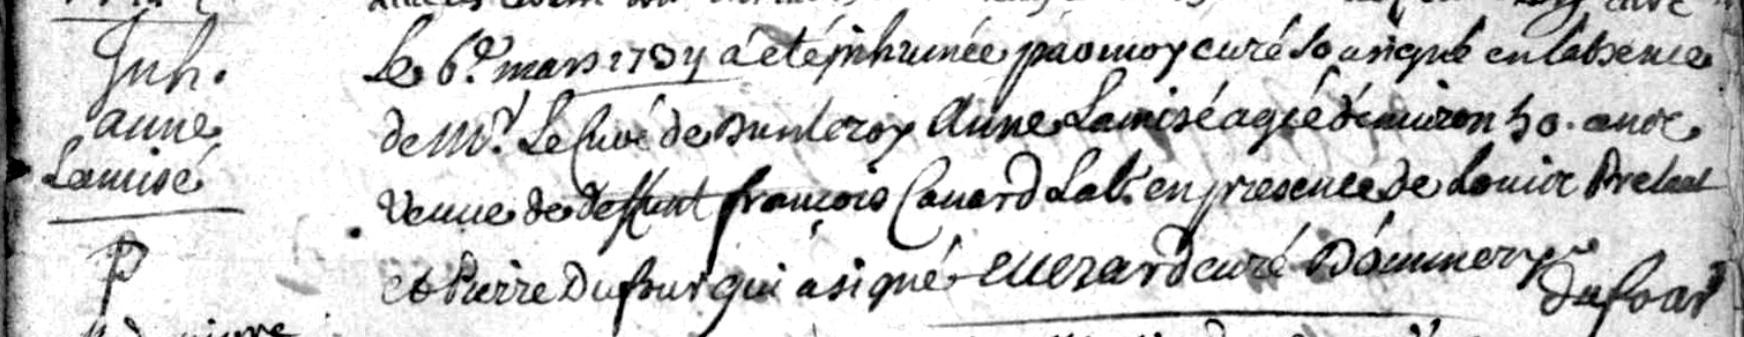 Inh.
anne
Lamisé
P
Le 6.e mars 1737 a eté inhumée par moy curé sousigné en labsence
de Mr. Le Curé de Dunleroy Anne Lamisé agée d'environ 50. ans
veuve de deffunt françois Canard Lab. en presence de Louis
et Pierre Dufour qui a signé curé D'ommery
Dufour